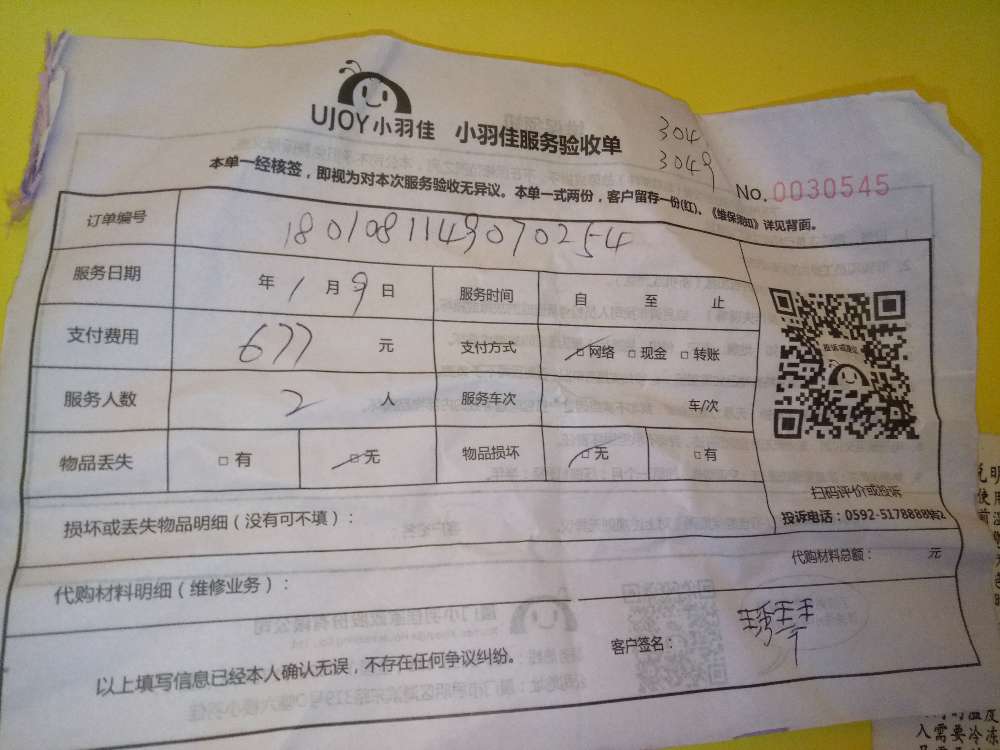 UJOY小羽佳 小羽佳服务验收单
304
3049
No.0030545
本单一经核签，即视为对本次服务验收无异议。本单一式两份，客户留存一份(红)、《维保须知》详见背面。
订单编号 1801081149070254
服务日期 年 1 月 9 日 服务时间 自 至 止
支付费用 677 元 支付方式 □网络 □现金 □转账
服务人数 2 人 服务车次 车/次
物品丢失 □有 □无 物品损坏 □无 □有
投诉或建议
扫码评价或投诉
投诉电话：0592-5178888转2
损坏或丢失物品明细（没有可不填）：
代购材料明细（维修业务）： 代购材料总额： 元
以上填写信息已经本人确认无误，不存在任何争议纠纷。 客户签名：
使用
入需要冷冻